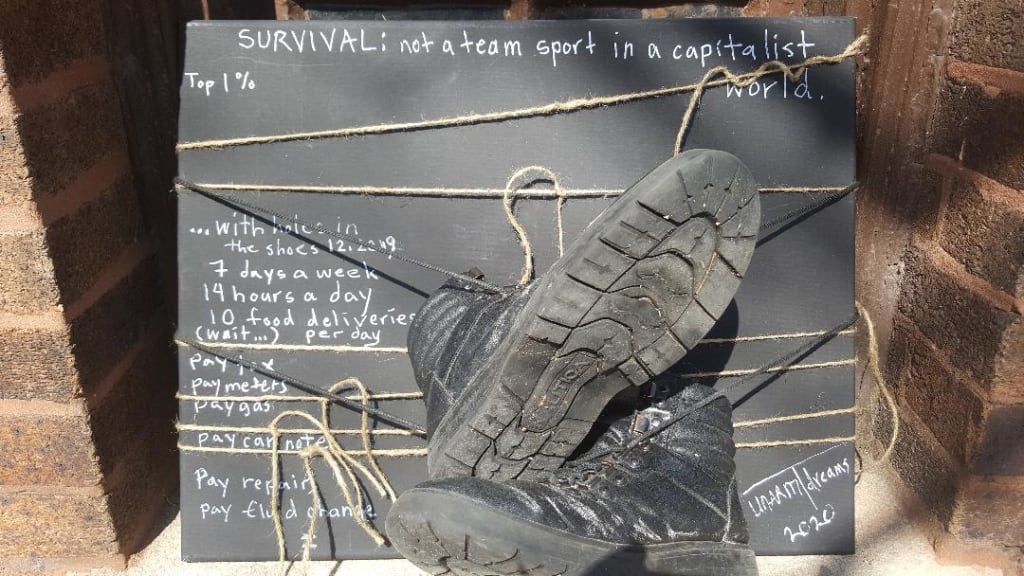 SURVIVAL: not a team sport in a capitalist
world.
Top 1%
... with holes in
the shoes 12.2019
7 days a week
14 hours a day
10 food deliveries
(wait...) per day
pay
pay meters
pay gas
pay car note
Pay repair
pay fluid change
dreams
2020